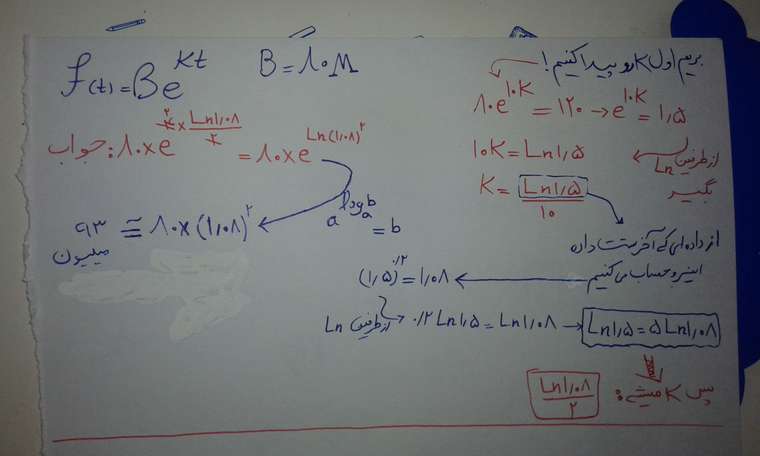 f(t) = Be^kt
B = ۸۰M
بریم اول K رو پیدا کنیم!
۸۰e^۱۰K = ۱۲۰ → e^۱۰K = ۱٫۵
از طرفین Ln بگیر
۱۰K = Ln۱٫۵
K = Ln۱٫۵ / ۱۰
از داده ای که آخر تست داده
اینرو حساب می کنیم
(۱٫۵)^۰٫۲ = ۱٫۰۸
از طرفین Ln
۰٫۲ Ln۱٫۵ = Ln۱٫۰۸ → Ln۱٫۵ = ۵Ln۱٫۰۸
پس K میشه: Ln۱٫۰۸ / ۲
جواب: ۸۰×e^۴×Ln۱٫۰۸/۲ = ۸۰×e^Ln(۱٫۰۸)^۲
a^log_a b = b
۹۳ ≅ ۸۰×(۱٫۰۸)^۲
میلیون